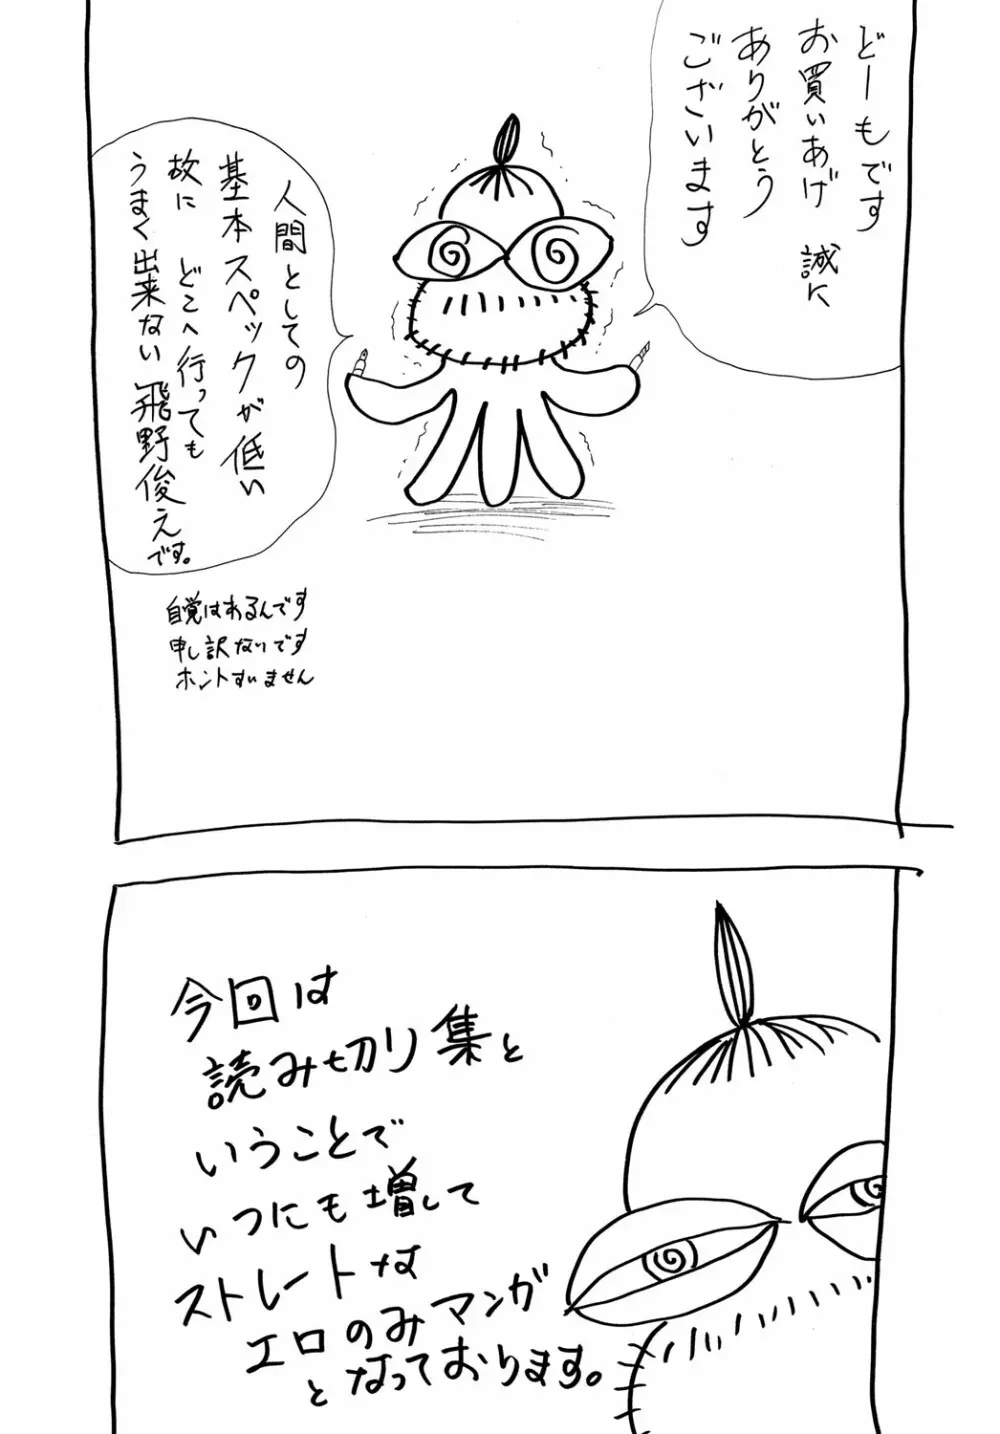 どーもです
お買いあげ 誠に
ありがとう
ございます
人間としての
基本スペックが低い
故に どこへ行っても
うまく出来ない飛野俊之です。
自覚はあるんです
申し訳ないです
ホントすいません
今回は
読み切り集と
いうことで
いつにも増して
ストレートな
エロのみマンガ
となっております。